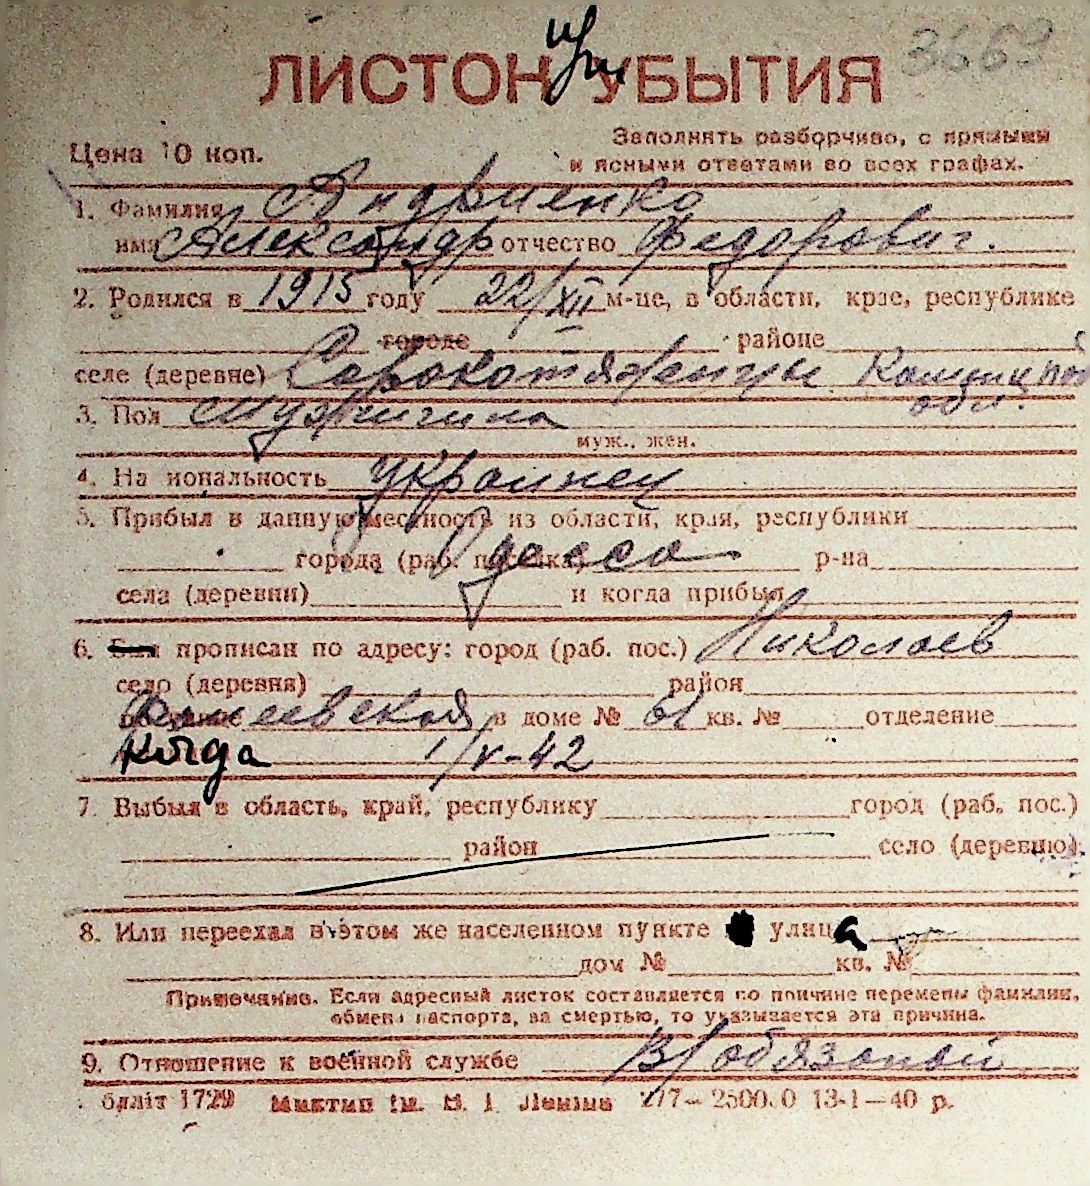 3669
ЛИСТОК при УБЫТИЯ
Цена 10 коп.
Заполнять разборчиво, с прямыми
и ясными ответами во всех графах.
1. Фамилия Андриенко
имя Александр отчество Федорович.
2. Родился в 1915 году 22/XII м-це, в области, крае, республике
городе районе
селе (деревне) Сорокотяженцы
обл.
3. Пол мужчина
муж., жен.
4. На иональность украинец
5. Прибыл в данную местность из области, края, республики
города (раб. поселка) Одесса р-на
села (деревни) и когда прибыл
6. Был прописан по адресу: город (раб. пос.) Николаев
село (деревня) район
в доме № 61 кв. № отделение
когда 1/V-42
7. Выбыл в область, край, республику город (раб. пос.)
район село (деревню)
8. Или переехал в этом же населенном пункте улица
дом № кв. №
Примечание. Если адресный листок составляется по причине перемены фамилии,
обмена паспорта, за смертью, то указывается эта причина.
9. Отношение к военной службе В/обязаной
1729 ім. В. І. Леніна 13-1—40 р.